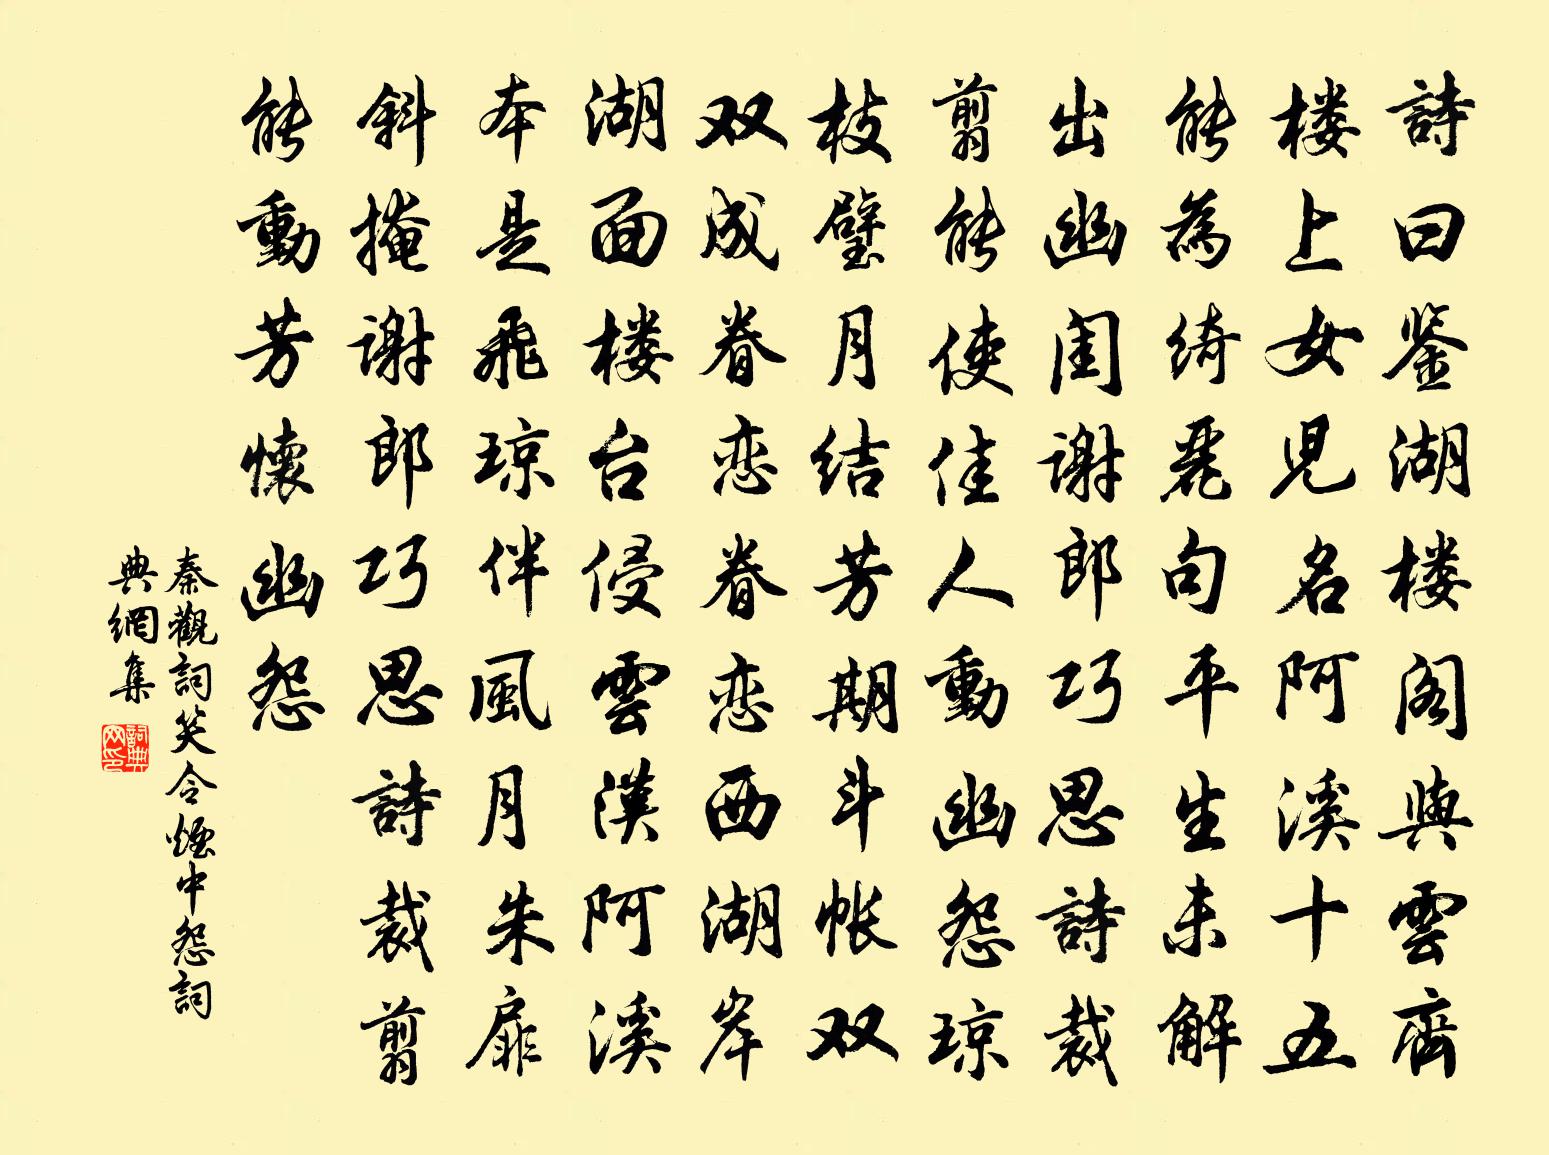 詩曰鉴湖楼阁與雲齊
楼上女児名阿溪十五
能為綺麗句平生未解
出幽闺谢郎巧思詩裁
剪能使佳人動幽怨琼
枝璧月结芳期斗帐双
双成眷恋眷恋西湖岸
湖面楼台侵雲漢阿溪
本是飛琼伴風月朱扉
斜掩谢郎巧思詩裁剪
能動芳懷幽怨
秦觀詞笑令煙中怨詞
典網集
詞典
网印